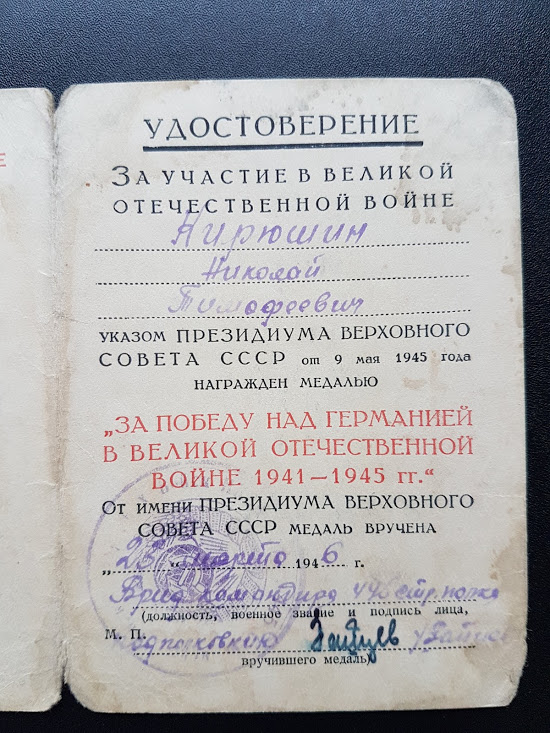 Е
УДОСТОВЕРЕНИЕ
ЗА УЧАСТИЕ В ВЕЛИКОЙ
ОТЕЧЕСТВЕННОЙ ВОЙНЕ
Кирюшин
Николай
Тимофеевич
УКАЗОМ ПРЕЗИДИУМА ВЕРХОВНОГО
СОВЕТА СССР от 9 мая 1945 года
НАГРАЖДЕН МЕДАЛЬЮ
„ЗА ПОБЕДУ НАД ГЕРМАНИЕЙ
В ВЕЛИКОЙ ОТЕЧЕСТВЕННОЙ
ВОЙНЕ 1941—1945 гг.“
ОТ ИМЕНИ ПРЕЗИДИУМА ВЕРХОВНОГО
СОВЕТА СССР МЕДАЛЬ ВРУЧЕНА
марта 1946 г.
Врид командира стр полка
(должность, военное звание и подпись лица,
М. П. подполковник Зайцев /Зайцев
вручившего медаль)